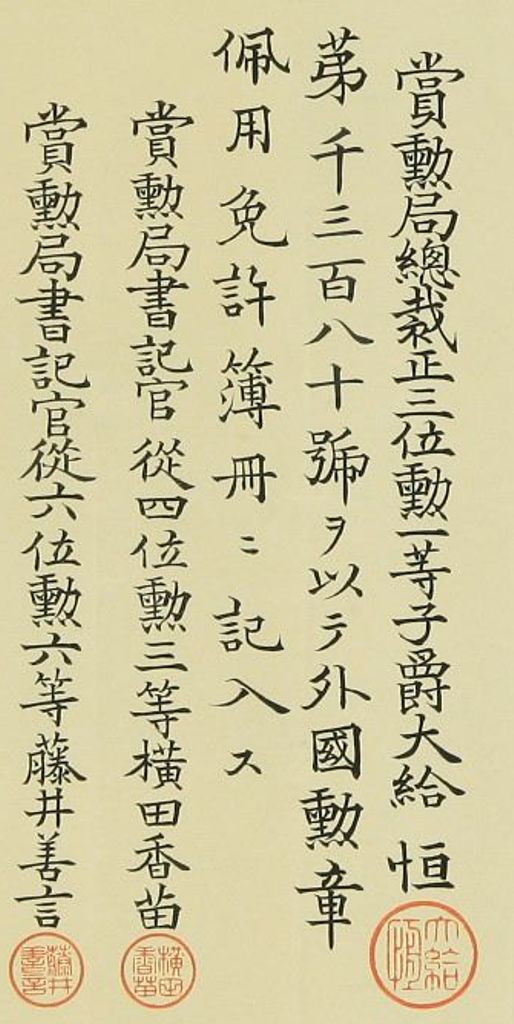 賞勲局總裁正三位勲一等子爵大給恒
大給恒
苐千三百八十號ヲ以テ外國勲章
佩用免許簿冊ニ記入ス
賞勲局書記官從四位勲三等横田香苗
横田香苗
賞勲局書記官從六位勲六等藤井善言
藤井善言